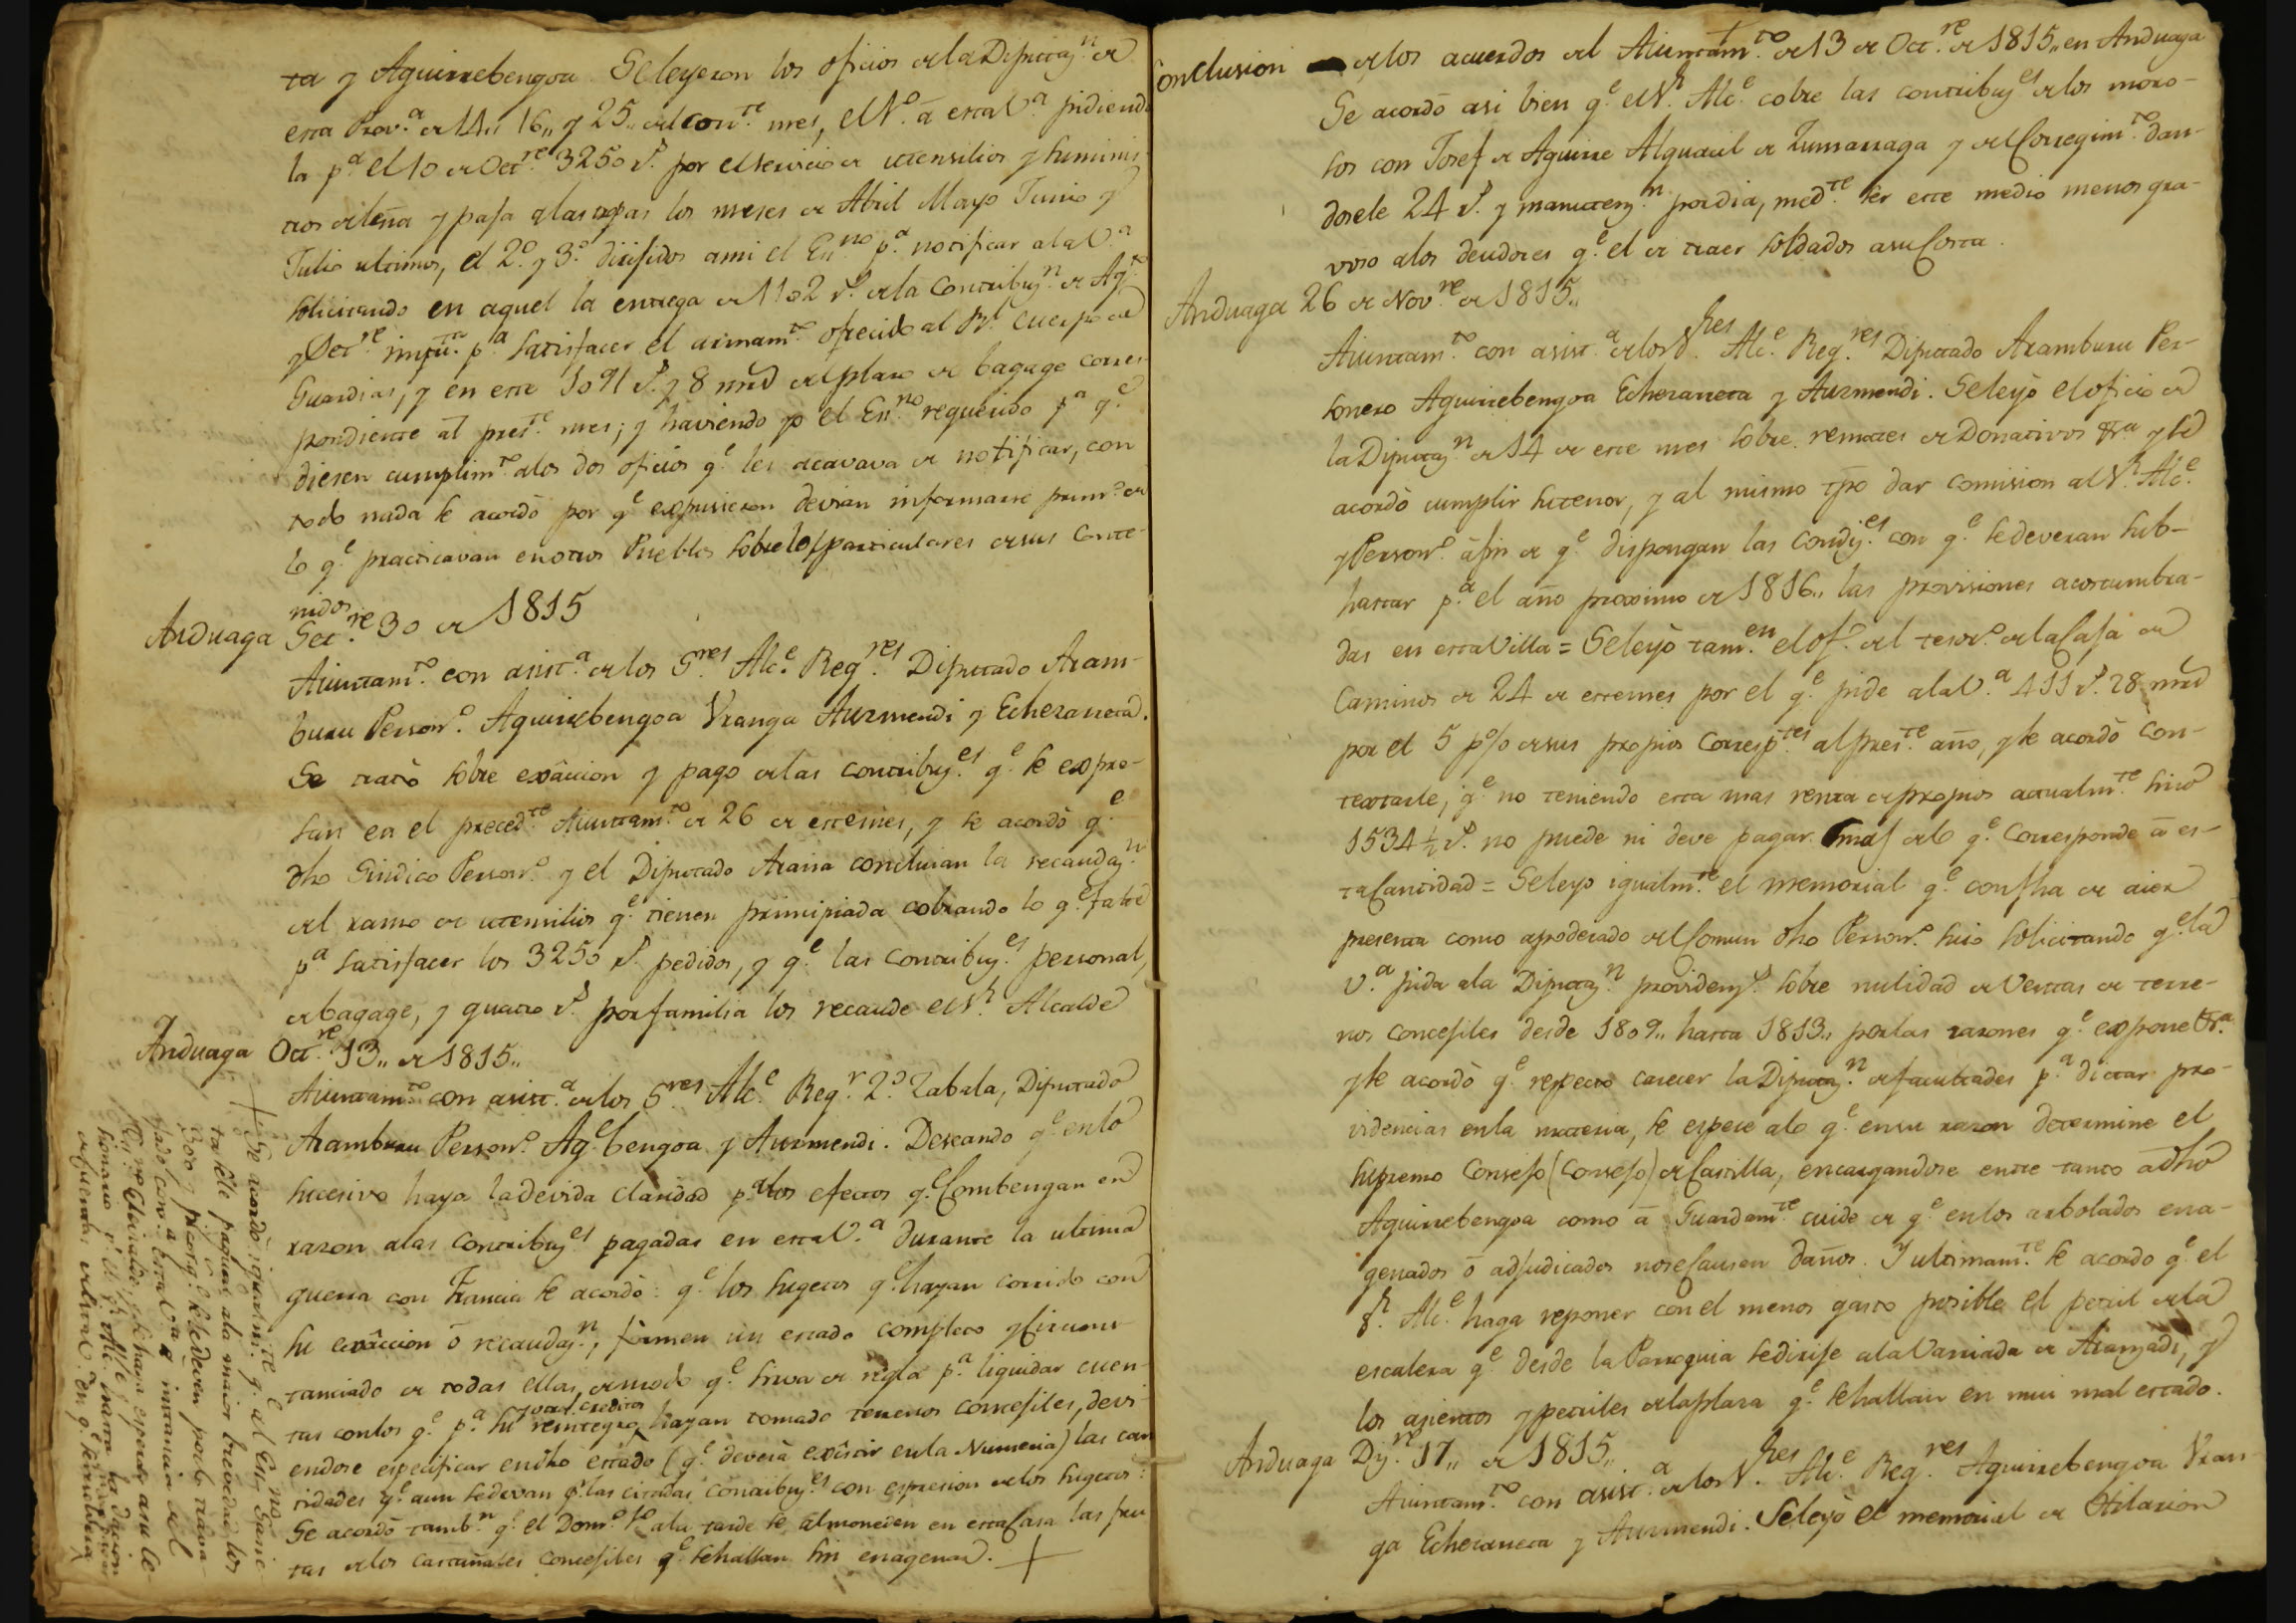 ta y Aguirrebengoa. Se leyeron los oficios de la Diputaz.n de
esta Prov.a de 14,, 16,, y 25,, del corr.te mes, el 1.o a esta V.a pidiendo
la p.a el 10 de Oct.re 3250 r.s por el servicio de utensilios y suminis-
tros de leña y paja a las tropas los meses de Abril Mayo Junio y
Julio ultimos, el 2.o y 3.o dirijidos a mi el Es.no p.a notificar a la V.a
solicitando en aquel la entrega de 1102 r.s de la Contribuz.n de Ag.to
y Set.re p.a satisfacer el armam.to ofrecido al R.l Cuerpo de
Guardias, y en este 1091 r.s y 8 mrd del plazo de bagage corres-
pondiente al pres.te mes; y haviendo yo el Es.no requerido p.a q.e
diesen cumplim.to a los dos oficios q.e les acavava de notificar, con
todo nada se acordò por q.e expusieron devian informarse prim.o de
lo q.e practicavan en otros Pueblos sobre los particulares de sus conte-
nidos
Anduaga Set.re 30 de 1815
Aiuntam.to con asist.a de los S.res Alc.e Reg.res Diputado Aram-
buru Person.o Aguirrebengoa Vranga Auzmendi y Echezarreta.
Se tratò sobre exâccion y pago de las contribuz.es q.e se expre-
san en el preced.te Aiuntam.to de 26 de este mes, y se acordò q.e
dho Sindico Person.o y el Diputado Araria concluian la recaudaz.n
del ramo de utensilios q.e tienen principiada cobrando lo q.e falte
p.a satisfacer los 3250 r.s pedidos, y q.e las contribuz.es personal,
de bagage, y quatro r.s por familia los recaude el S.r Alcalde
Anduaga Oct.re 13,, de 1815,,
Aiuntam.to con asist.a de los S.res Alc.e Reg.r 2.o Zabala, Diputado
Aramburu Person.o Ag.e bengoa y Auzmendi. Deseando q.e en lo
sucesivo haya la devida claridad p.a los efectos q.e combengan en
razon a las contribuz.es pagadas en esta V.a durante la ultima
guerra con Francia se acordò: q.e los sugetos q.e hayan corrido con
su exâccion ò recaudaz.n, formen un estado completo y circuns-
tanciado de todas ellas, de modo q.e sirva de regla p.a liquidar cuen-
tas con los q.e p.a su reintegro y otros creditos hayan tomado terrenos concejiles, devi-
endose especificar en dho estado (q.e deverà exîstir en la Numeria) las can-
tidades q.e aun se devan p.r las citadas contribuz.es con espresion de los sugetos:
Se acordò tamb.n q.e el Dom.o a la tarde se almoneden en esta Casa las fru-
tas de los castañales concejiles q.e se hallan sin enagenar. +
+ Se acordò igualm.te q.e al Es.no
ta se le paguen a la maior brevedad los
r.s q.e se le deven por lo traba-
jado con esta V.a a instancia del
Alcalde, y se haga espera a su le-
sionario el S.r Alc.e hasta la dacion
de cuentas de la V.a en q.e se incluira
Conclusion de los acuerdos del Aiuntam.to de 13 de Oct.re de 1815,, en Anduaga
Se acordò asi bien q.e el S.r Alc.e cobre las contribuz.es de los moro-
sos con Josef de Aguirre Alguacil de Zumarraga y del Corregim.to dan-
dosele 24 r.s y manutenz.n por dia, med.te ser este medio menos gra-
voso a los deudores q.e el de traer soldados a su Costa.
Anduaga 26 de Nov.re de 1815,,
Aiuntam.to con asist.a de los S.res Alc.e Reg.res Diputado Aramburu Per-
sonero Aguirrebengoa Echezarreta y Auzmendi. Se leyò el oficio de
la Diputaz.n de 14 de este mes sobre remates de Donativos &.a y se
acordò cumplir su tenor, y al mismo tpo dar comision al S.r Alc.e
y Person.o à fin de q.e dispongan las condiz.es con q.e se deveran sub-
hastar p.a el año proximo de 1816,, las provisiones acostumbra-
das en esta Villa = Se leyò tam.en el of.o del tesor.o de la Caja de
Caminos de 24 de este mes por el q.e pide a la V.a 411 r.s 28 mrd
por el 5 p% de sus propios corresp.tes al pres.te año, y se acordò con-
textarle, q.e no teniendo esta mas renta de propios actualm.te sino
1534 ½ r.s no puede ni deve pagar mas de lo q.e corresponde à es-
ta Cantidad = Se leyo igualm.te el memorial q.e con fha de aier
presenta como apoderado del Comun dho Person.o suio solicitando q.e la
V.a pida a la Diputaz.n providenz.s sobre nulidad de Ventas de terre-
nos concejiles desde 1809,, hasta 1813,, por las razones q.e expone &.a
y se acordò q.e respecto carecer la Diputaz.n de facultades p.a dictar pro-
videncias en la materia, se espere a lo q.e en su razon determine el
supremo Consejo (Consejo) de Castilla, encargandose entre tanto à dho
Aguirrebengoa como à Guardam.te cuide de q.e en los arbolados ena-
genados ò adjudicados no se causen daños. Y ultimam.te se acordo q.e el
S.r Alc.e haga reponer con el menos gasto posible el petril de la
escalera q.e desde la Parroquia se dirije a la Varriada de Aranzadi, y
los asientos y petriles de la plaza q.e se hallan en mui mal estado.
Anduaga Diz.re 17,, de 1815,,
Aiuntam.to con asist.a de los S.res Alc.e Reg.res Aguirrebengoa Vran-
ga Echezarreta y Auzmendi. Se leyò el memorial de Hilarion